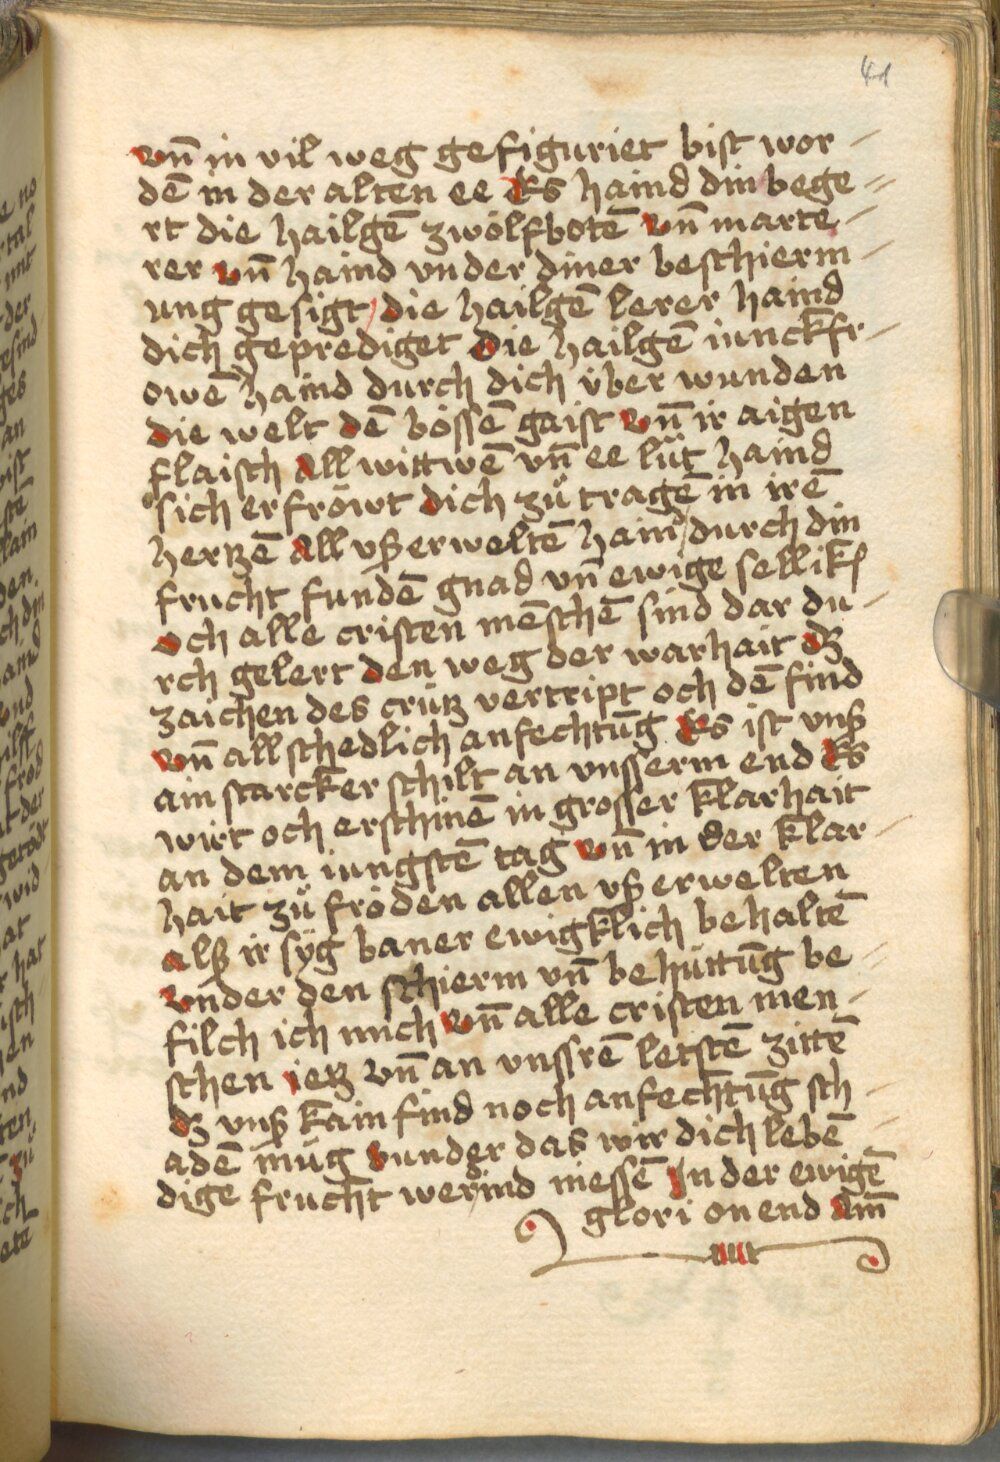 41
vn̄ in vil weg gefiguriet bist wor-
dē in der alten ee Es haind din bege=
rt die hailgē zwölfbotē vn̄ marte-
rer vn̄ haind vnder diner beschierm-
ung gesigt die hailgē lerer haind
dich geprediget Die hailgē iunckfr-
owē haind durch dich über wunden
die welt dē bössē gaist vn̄ ir aigen
flaisch All wittwē vn̄ ee lüt haind
sich erfröwt dich zů tragē in irē
hertzē All vß erweltē haind durch din
frucht fundē gnad vn̄ ewige sellik
och alle cristen mēschē sind dar du-
rch gelert den weg der warhait dz
zaichen des crütz vertript och dē find
vn̄ all schedlich anfechtūg Es ist vnß
ain starcker schilt an vnsserm end Es
wirt och erschinē in grosser klarhait
an dem iungstē tag vn̄ in der klar-
hait zů fröden allen vß erwelten
alß ir syg baner ewigklich behaltē
vnder den schierm vn̄ behüttūg be-
filch ich mich vn̄ alle cristen men-
schen ietz vn̄ an vnssrē letstē zittē
dz vnß kain find noch anfechtūg sch-
adē müg vunder das wir dich lebē-
dige frucht werind niessē In der ewigē
glori on end Am̄